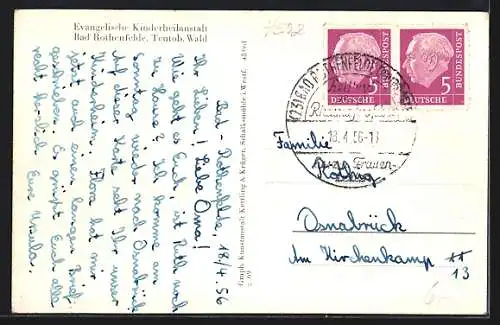 Evangelische Kinderheilanstalt
Bad Rothenfelde, Teutob. Wald
Bad Rothenfelde, 18/4. 56
Ihr Lieben! Liebe Oma!
Wie geht es Euch, ist Ruth noch
zu Hause? Ich komme am
Sonntag wieder nach Osnabrück
Auf dieser Karte seht Ihr unser
Kinderheim. Flora hat mir
jetzt auch einen langen Brief
geschrieben. Es grüßt Euch alle
recht herzlich
Eure Ursula.
Graph. Kunstanstalt Kettling & Krüger, Schalksmühle i. Westf.
DEUTSCHE
BUNDESPOST
5
DEUTSCHE
BUNDESPOST
5
BAD ROTHENFELDE
18.4.56-17
Familie
Osnabrück
Am Kirchenkamp
13